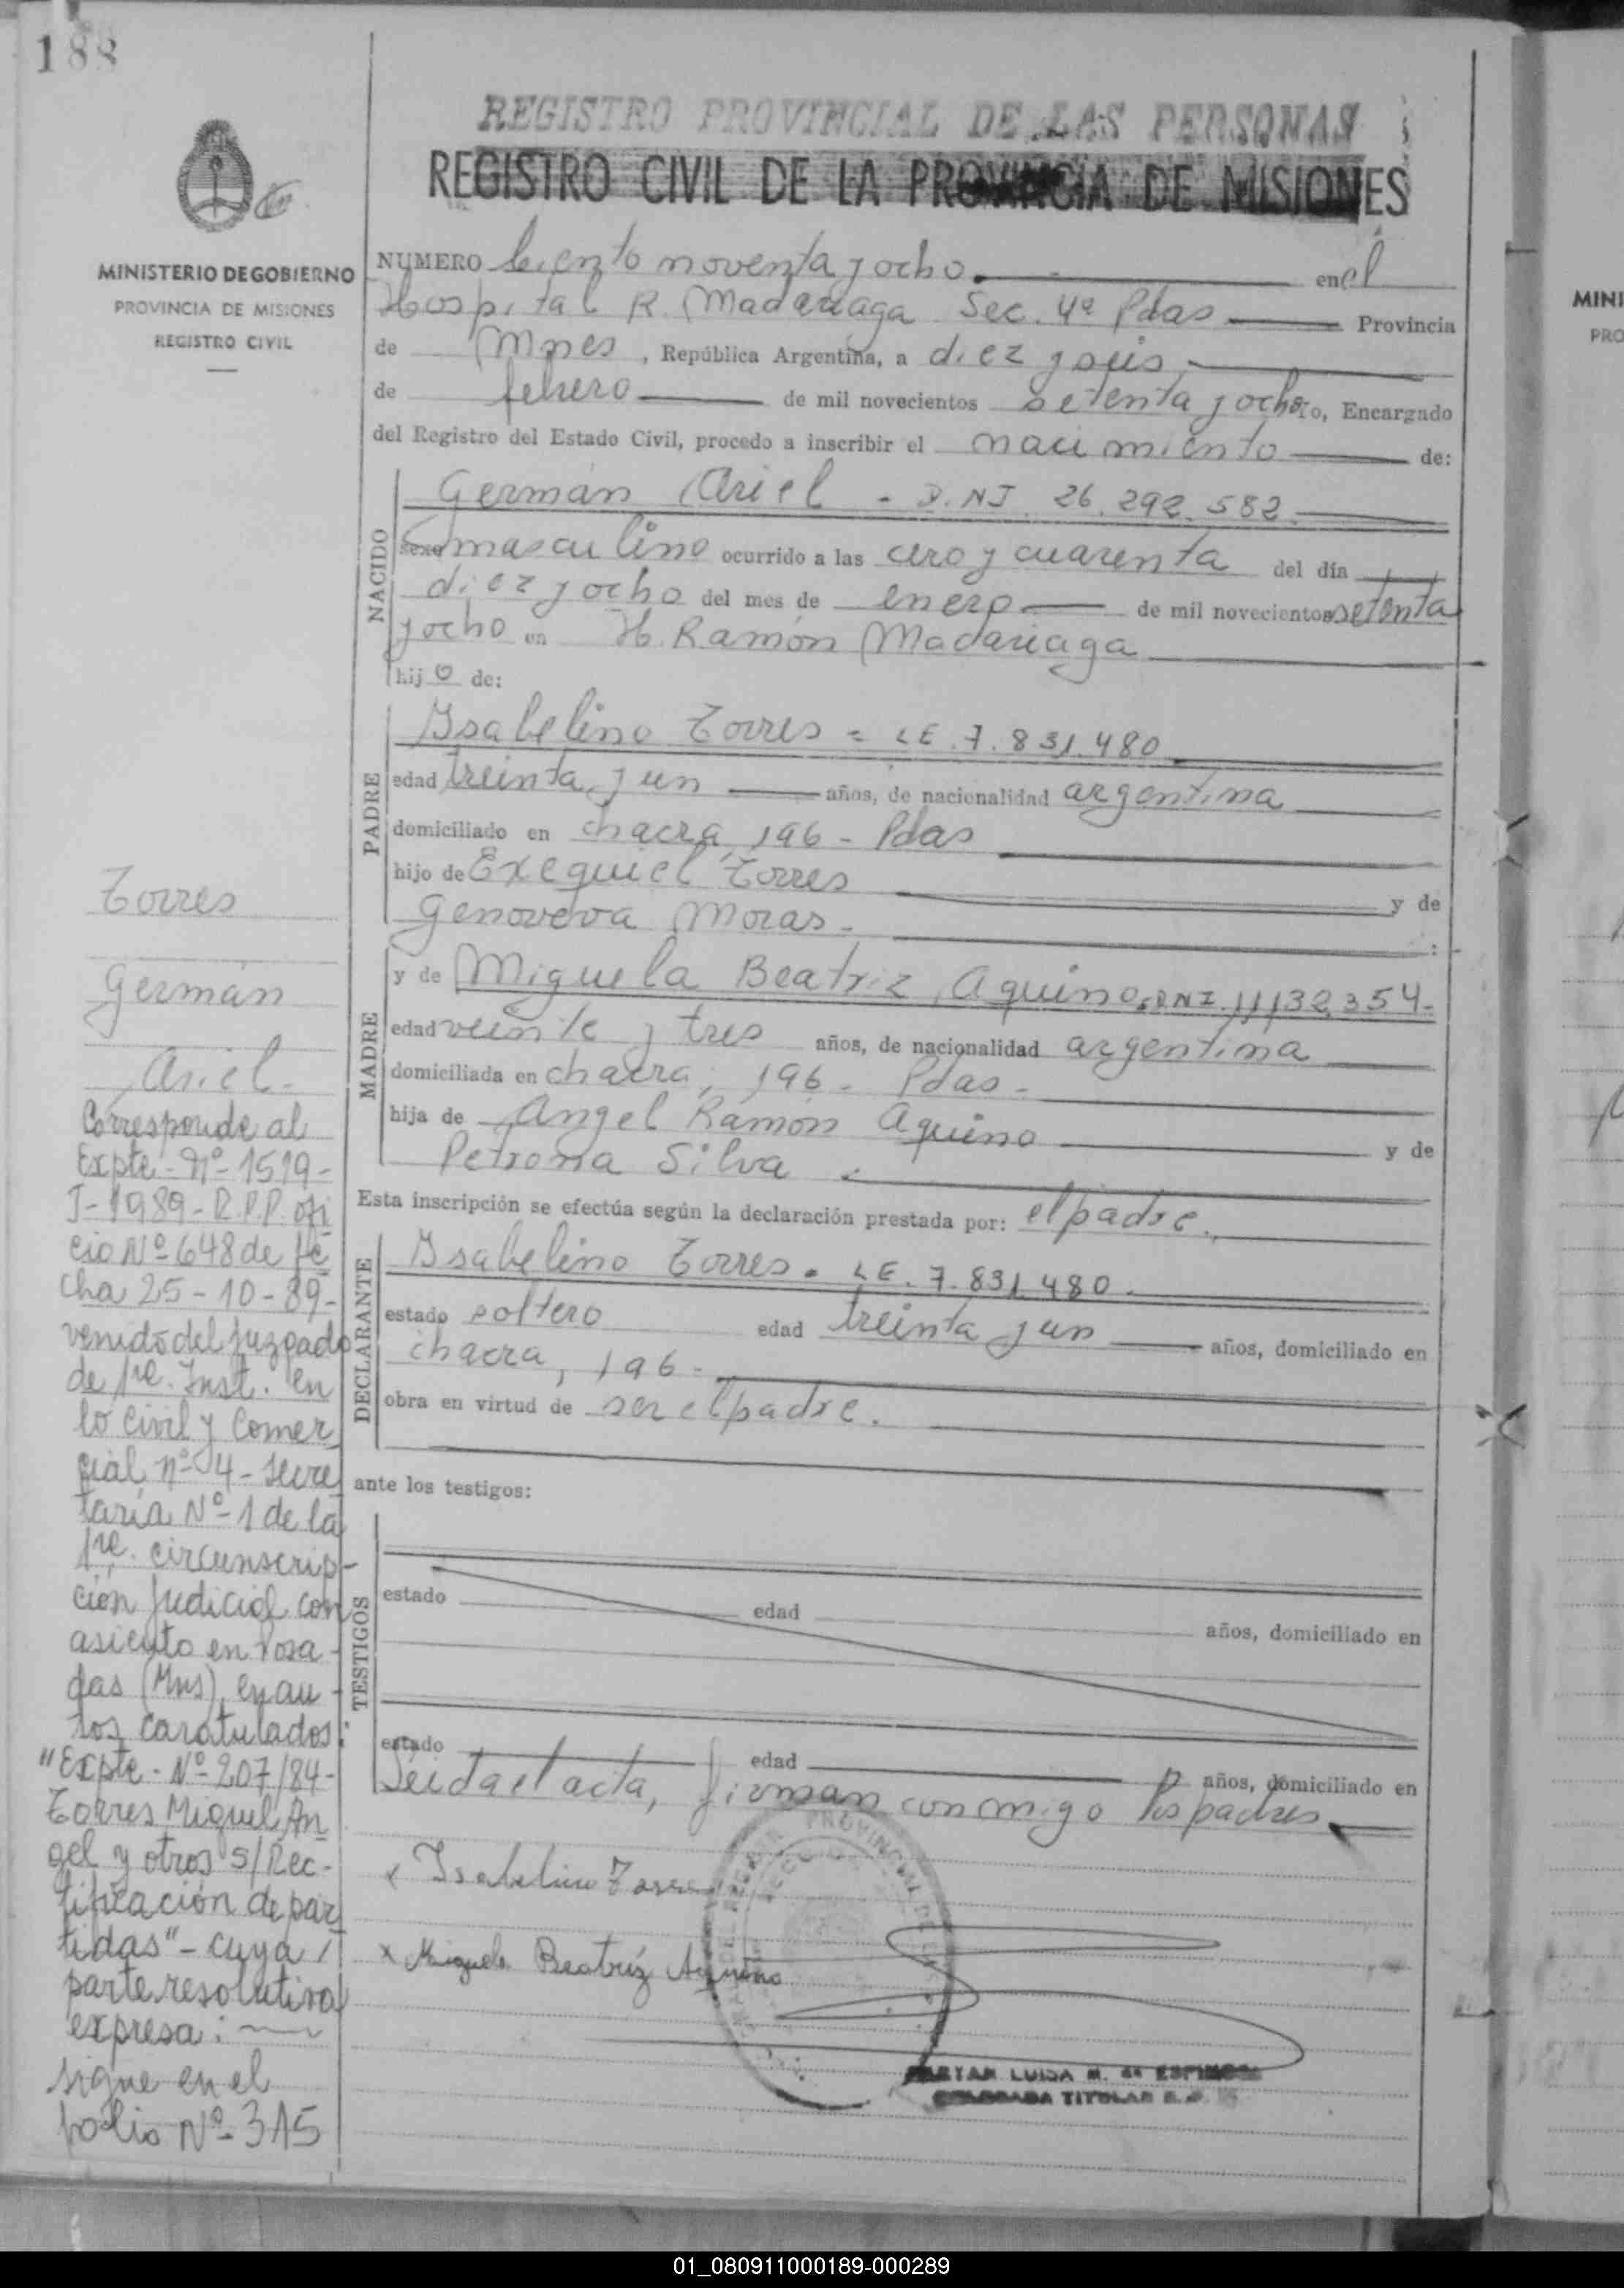 188
REGISTRO PROVINCIAL DE LAS PERSONAS
REGISTRO CIVIL DE LA PROVINCIA DE MISIONES
MINISTERIO DE GOBIERNO
PROVINCIA DE MISIONES
REGISTRO CIVIL
NUMERO Ciento noventa y ocho. en el
Hospital R. Madariaga Sec. 4ª Pdas Provincia
de Mnes, República Argentina, a diez y seis
de febrero de mil novecientos setenta y ocho, Encargado
del Registro del Estado Civil, procedo a inscribir el nacimiento de:
NACIDO
Germán Ariel - D.N.I 26.292.582.
sexo masculino ocurrido a las cero y cuarenta del día
diez y ocho del mes de enero de mil novecientos setenta
y ocho en H. Ramón Madariaga
hijo de:
PADRE
Isabelino Torres = LE. 7.831.480
edad treinta y un años, de nacionalidad argentina
domiciliado en chacra, 196 - Pdas
hijo de Exequiel Torres y de
Genoveva Moras. :
MADRE
y de Miguela Beatriz Aquino, DNI. 11,132,354.
edad veinte y tres años, de nacionalidad argentina
domiciliada en chacra, 196 - Pdas -
hija de Angel Ramón Aquino y de
Petrona Silva
Esta inscripción se efectúa según la declaración prestada por: el padre.
DECLARANTE
Isabelino Torres. LE. 7.831.480.
estado soltero edad treinta y un años, domiciliado en
chacra, 196.
obra en virtud de ser el padre.
ante los testigos:
TESTIGOS
estado edad años, domiciliado en
estado edad años, domiciliado en
Leida el acta, firman conmigo los padres.
x Isabelino Torres
x Miguela Beatríz Aquino
LUISA M. de ESPINOSA
TITULAR
Torres
Germán
Ariel-
Corresponde al
Expte - Nº 1519-
T-1989-R.P.P. ofi
cio Nº 648 de fe
cha 25-10-89-
venido del Juzgado
de 1re. Inst. en
lo Civil y Comer
cial nº 4 - Secre
taría Nº 1 de la
1re. circunscrip-
ción Judicial con
asiento en Posa-
das (Mns), en au-
tos caratulados:
"Expte - Nº 207/84-
Torres Miguel An
gel y otros s/Rec-
tificación de par
tidas" - cuya /
parte resolutiva
expresa:
sigue en el
folio Nº 315
MINI
PRO
01_080911000189-000289